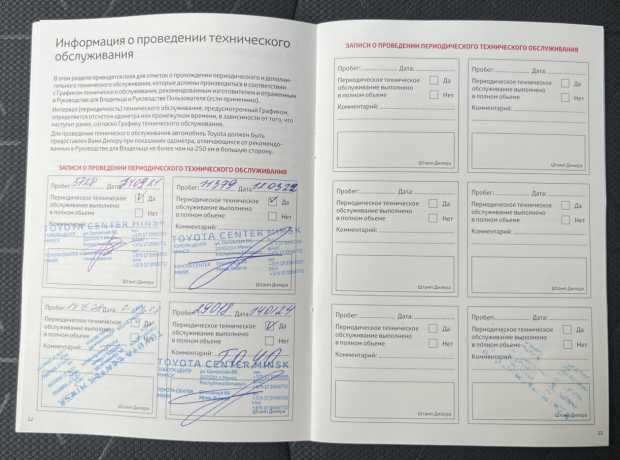 Информация о проведении технического
обслуживания
В этом разделе приводятся поля для отметок о прохождении периодического и дополни-
тельного технического обслуживания, которые должны производиться в соответствии
с Графиком технического обслуживания, рекомендованным изготовителем и отраженным
в Руководстве для Владельца и Руководстве Пользователя (если применимо).
Интервал (периодичность) технического обслуживания, предусмотренный Графиком,
определяется отсчетом одометра или промежутком времени, в зависимости от того, что
наступит ранее, согласно Графику технического обслуживания.
Для проведения технического обслуживания автомобиль Toyota должен быть
предоставлен Вами Дилеру при показании одометра, отличающихся от рекомендо-
ванных в Руководстве для Владельца не более чем на 250 км в большую сторону.
ЗАПИСИ О ПРОВЕДЕНИИ ПЕРИОДИЧЕСКОГО ТЕХНИЧЕСКОГО ОБСЛУЖИВАНИЯ
Пробег: Дата:
Периодическое техническое Да
обслуживание выполнено
в полном объеме Нет
Комментарий:
TOYOTA CENTER MINSK
Штамп Дилера
Пробег: 11379 Дата: 11.03.22
Периодическое техническое Да
обслуживание выполнено
в полном объеме Нет
TOYOTA CENTER MINSK
Штамп Дилера
Пробег: Дата:
Периодическое техническое Да
обслуживание выполнено
в полном объеме Нет
Комментарий:
TOYOTA CENTER MINSK
Штамп Дилера
Пробег: 29018 Дата: 140124
Периодическое техническое Да
обслуживание выполнено
в полном объеме Нет
Комментарий:
TOYOTA CENTER MINSK
Штамп Дилера
32
ЗАПИСИ О ПРОВЕДЕНИИ ПЕРИОДИЧЕСКОГО ТЕХНИЧЕСКОГО ОБСЛУЖИВАНИЯ
Пробег: Дата:
Периодическое техническое Да
обслуживание выполнено
в полном объеме Нет
Комментарий:
Штамп Дилера
Пробег: Дата:
Периодическое техническое Да
обслуживание выполнено
в полном объеме Нет
Комментарий:
Штамп Дилера
Пробег: Дата:
Периодическое техническое Да
обслуживание выполнено
в полном объеме Нет
Комментарий:
Штамп Дилера
Пробег: Дата:
Периодическое техническое Да
обслуживание выполнено
в полном объеме Нет
Комментарий:
Штамп Дилера
Пробег: Дата:
Периодическое техническое Да
обслуживание выполнено
в полном объеме Нет
Комментарий:
Штамп Дилера
Пробег: Дата:
Периодическое техническое Да
обслуживание выполнено
в полном объеме Нет
Комментарий:
Штамп Дилера
33